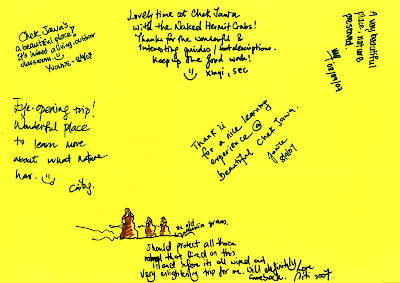 Chek Jawa's
a beautiful place!
It's indeed a living outdoor
classroom.
Yvonne - 8/9/07
Lovely time at Chek Jawa
with the Naked Hermit Crabs!
Thanks for the wonderful &
interesting guides/ descriptions.
Keep up the good work!
Xinyi, SEC
A very beautiful
place, nature
preserved.
08/09/07
Eye-opening trip!
Wonderful place
to learn more
about what nature
has.
Cathy.
Thank U
for a nice learning
experience @
beautiful Chek Jawa.
Janice
8/9/07
an old
gram.
should protect all those
that lived on this
island before its all wiped out.
Very enlightening trip for me. Will definitely
comeback. here
Siti 2007